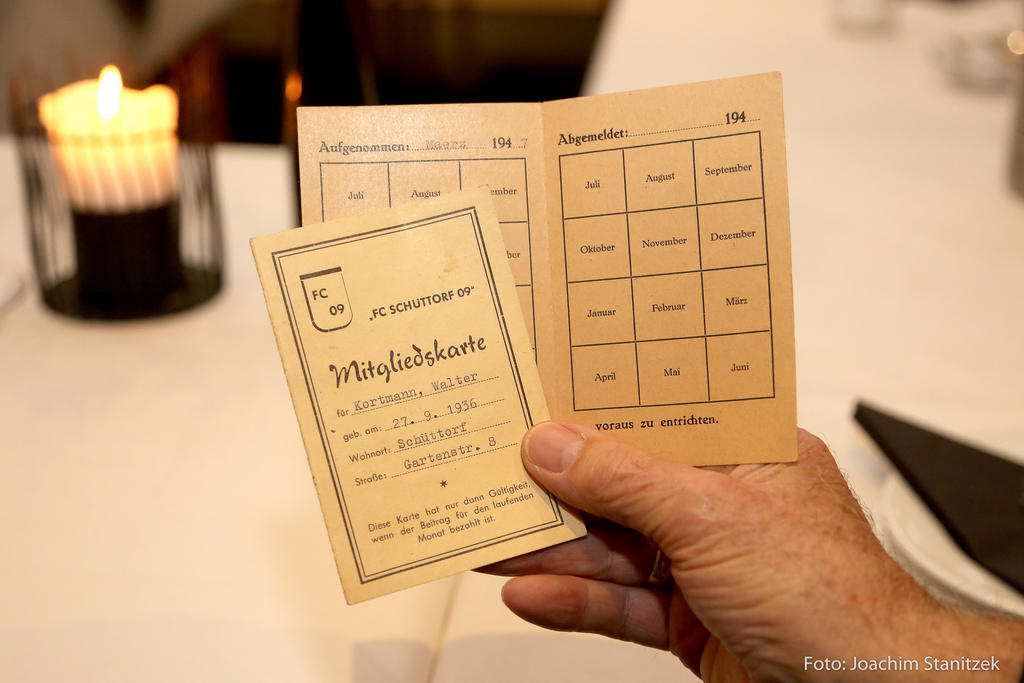 Aufgenommen: Maerz 1947
Juli August ember
ber
Abgemeldet: 194
Juli August September
Oktober November Dezember
Januar Februar März
April Mai Juni
voraus zu entrichten.
FC
09
„FC SCHÜTTORF 09"
Mitgliedskarte
für Kortmann, Walter
geb. am: 27. 9. 1936
Wohnort: Schüttorf
Straße: Gartenstr. 8
*
Diese Karte hat nur dann Gültigkeit,
wenn der Beitrag für den laufenden
Monat bezahlt ist.
Foto: Joachim Stanitzek